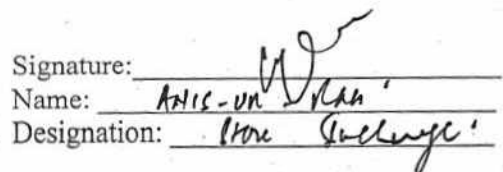 Signature:
Name: ANIS-UR
Designation: Store Incharge